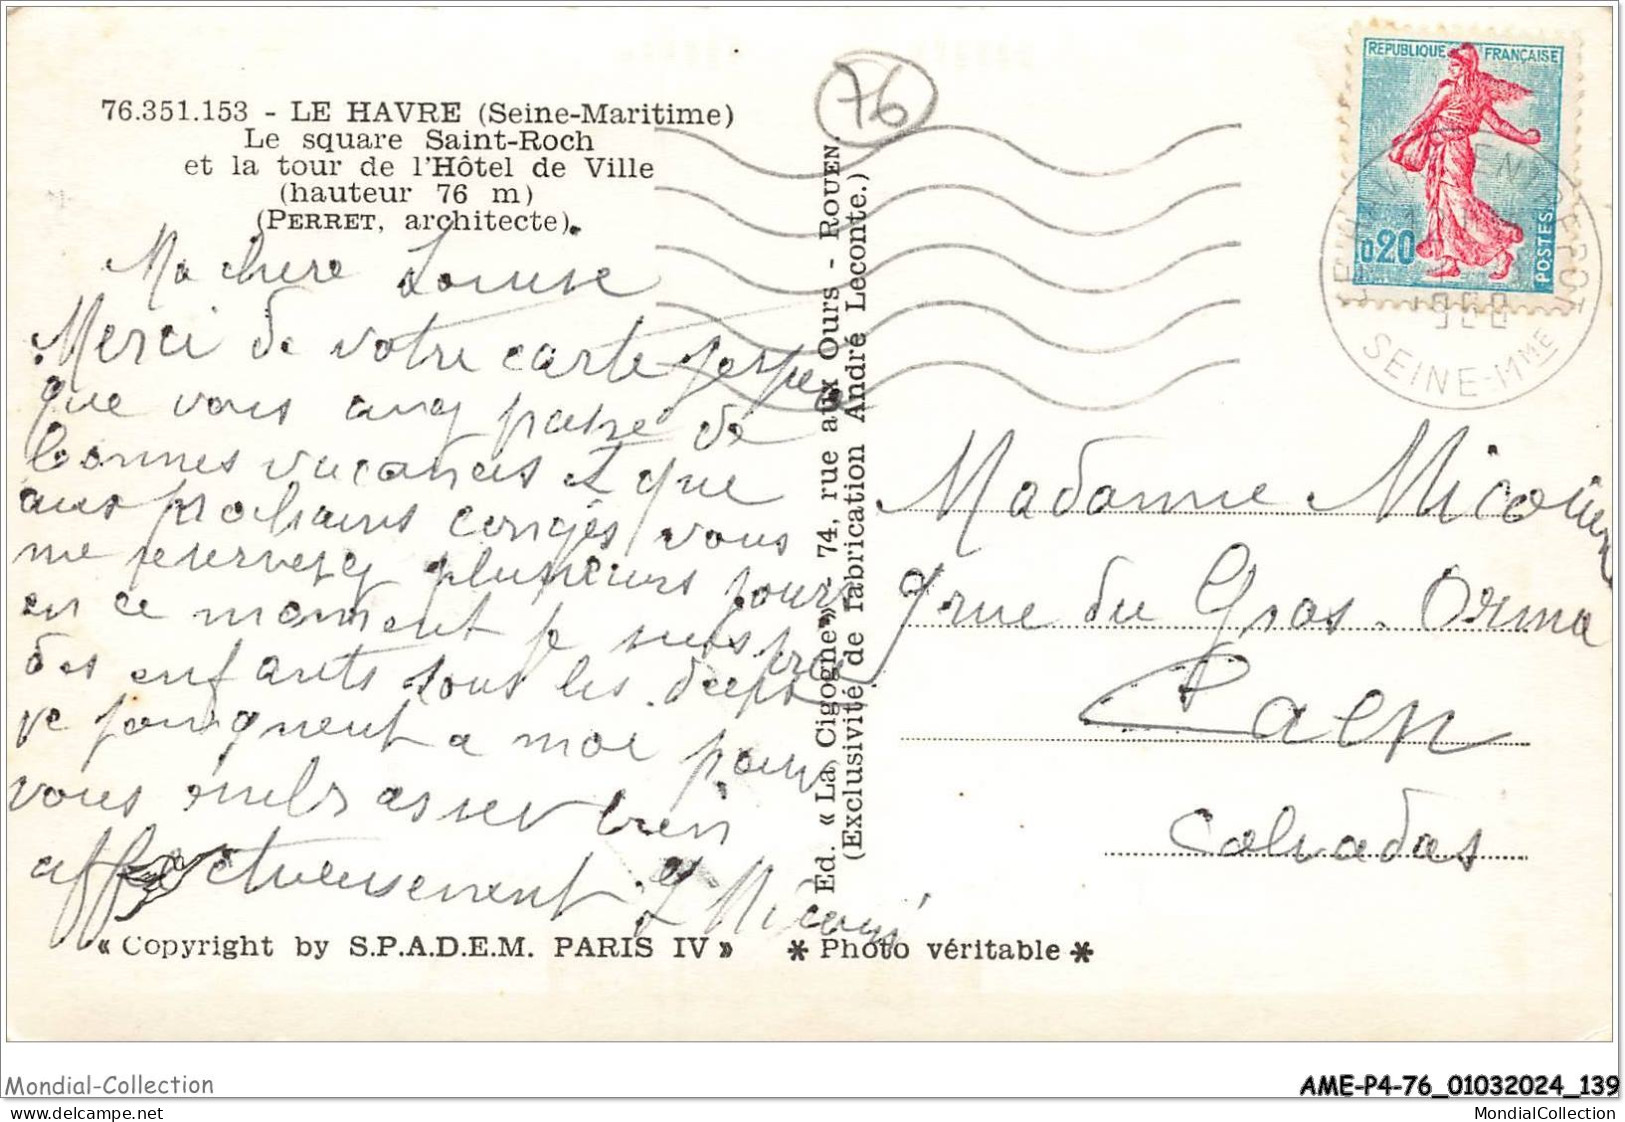 76.351.153 - LE HAVRE (Seine-Maritime)
Le square Saint-Roch
et la tour de l'Hôtel de Ville
(hauteur 76 m)
(PERRET, architecte).
76
REPUBLIQUE FRANÇAISE
0,20
POSTES
SEINE-Mme
Ma chere Louise
Merci de votre carte j'espere
que vous avez passé de
bonnes vacances et que
aux prochains congés vous
me reserverez plusieurs jours
en ce moment je suis
des enfants tous les deux
se joignent a moi pour
vous embrasser bien
affectueusement
Ed. « La Cigogne » 74, rue aux Ours - ROUEN.
(Exclusivité de fabrication André Leconte.)
Madame
9 rue du Gros Orme
Caen
Calvados
« Copyright by S.P.A.D.E.M. PARIS IV » * Photo véritable *
Mondial-Collection
AME-P4-76_01032024_139
the world's largest collection market
MondialCollection